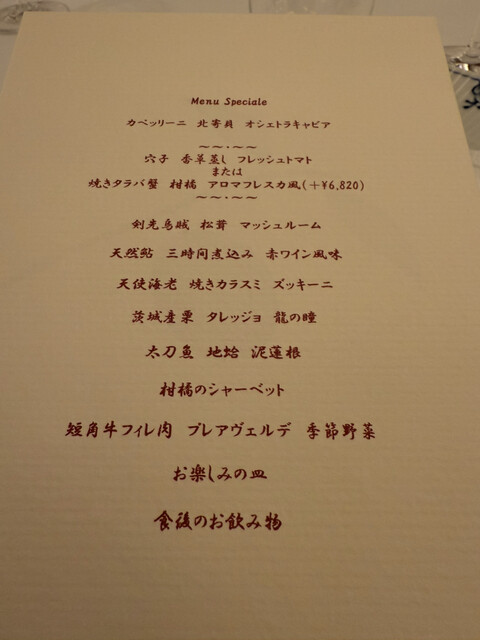 Menu Speciale
カペッリーニ 北寄貝 オシェトラキャビア
～～・～～
穴子 香草蒸し フレッシュトマト
または
焼きタラバ蟹 柑橘 アロマフレスカ風(＋¥6,820)
～～・～～
剣先烏賊 松茸 マッシュルーム
天然鮎 三時間煮込み 赤ワイン風味
天使海老 焼きカラスミ ズッキーニ
茨城産栗 タレッジョ 龍の瞳
太刀魚 地蛤 泥蓮根
柑橘のシャーベット
短角牛フィレ肉 プレアヴェルデ 季節野菜
お楽しみの皿
食後のお飲み物